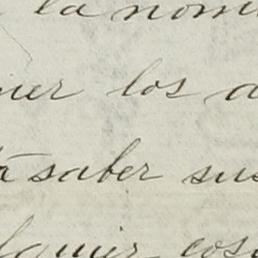 la nom
ner los a
a saber sus
quier cos